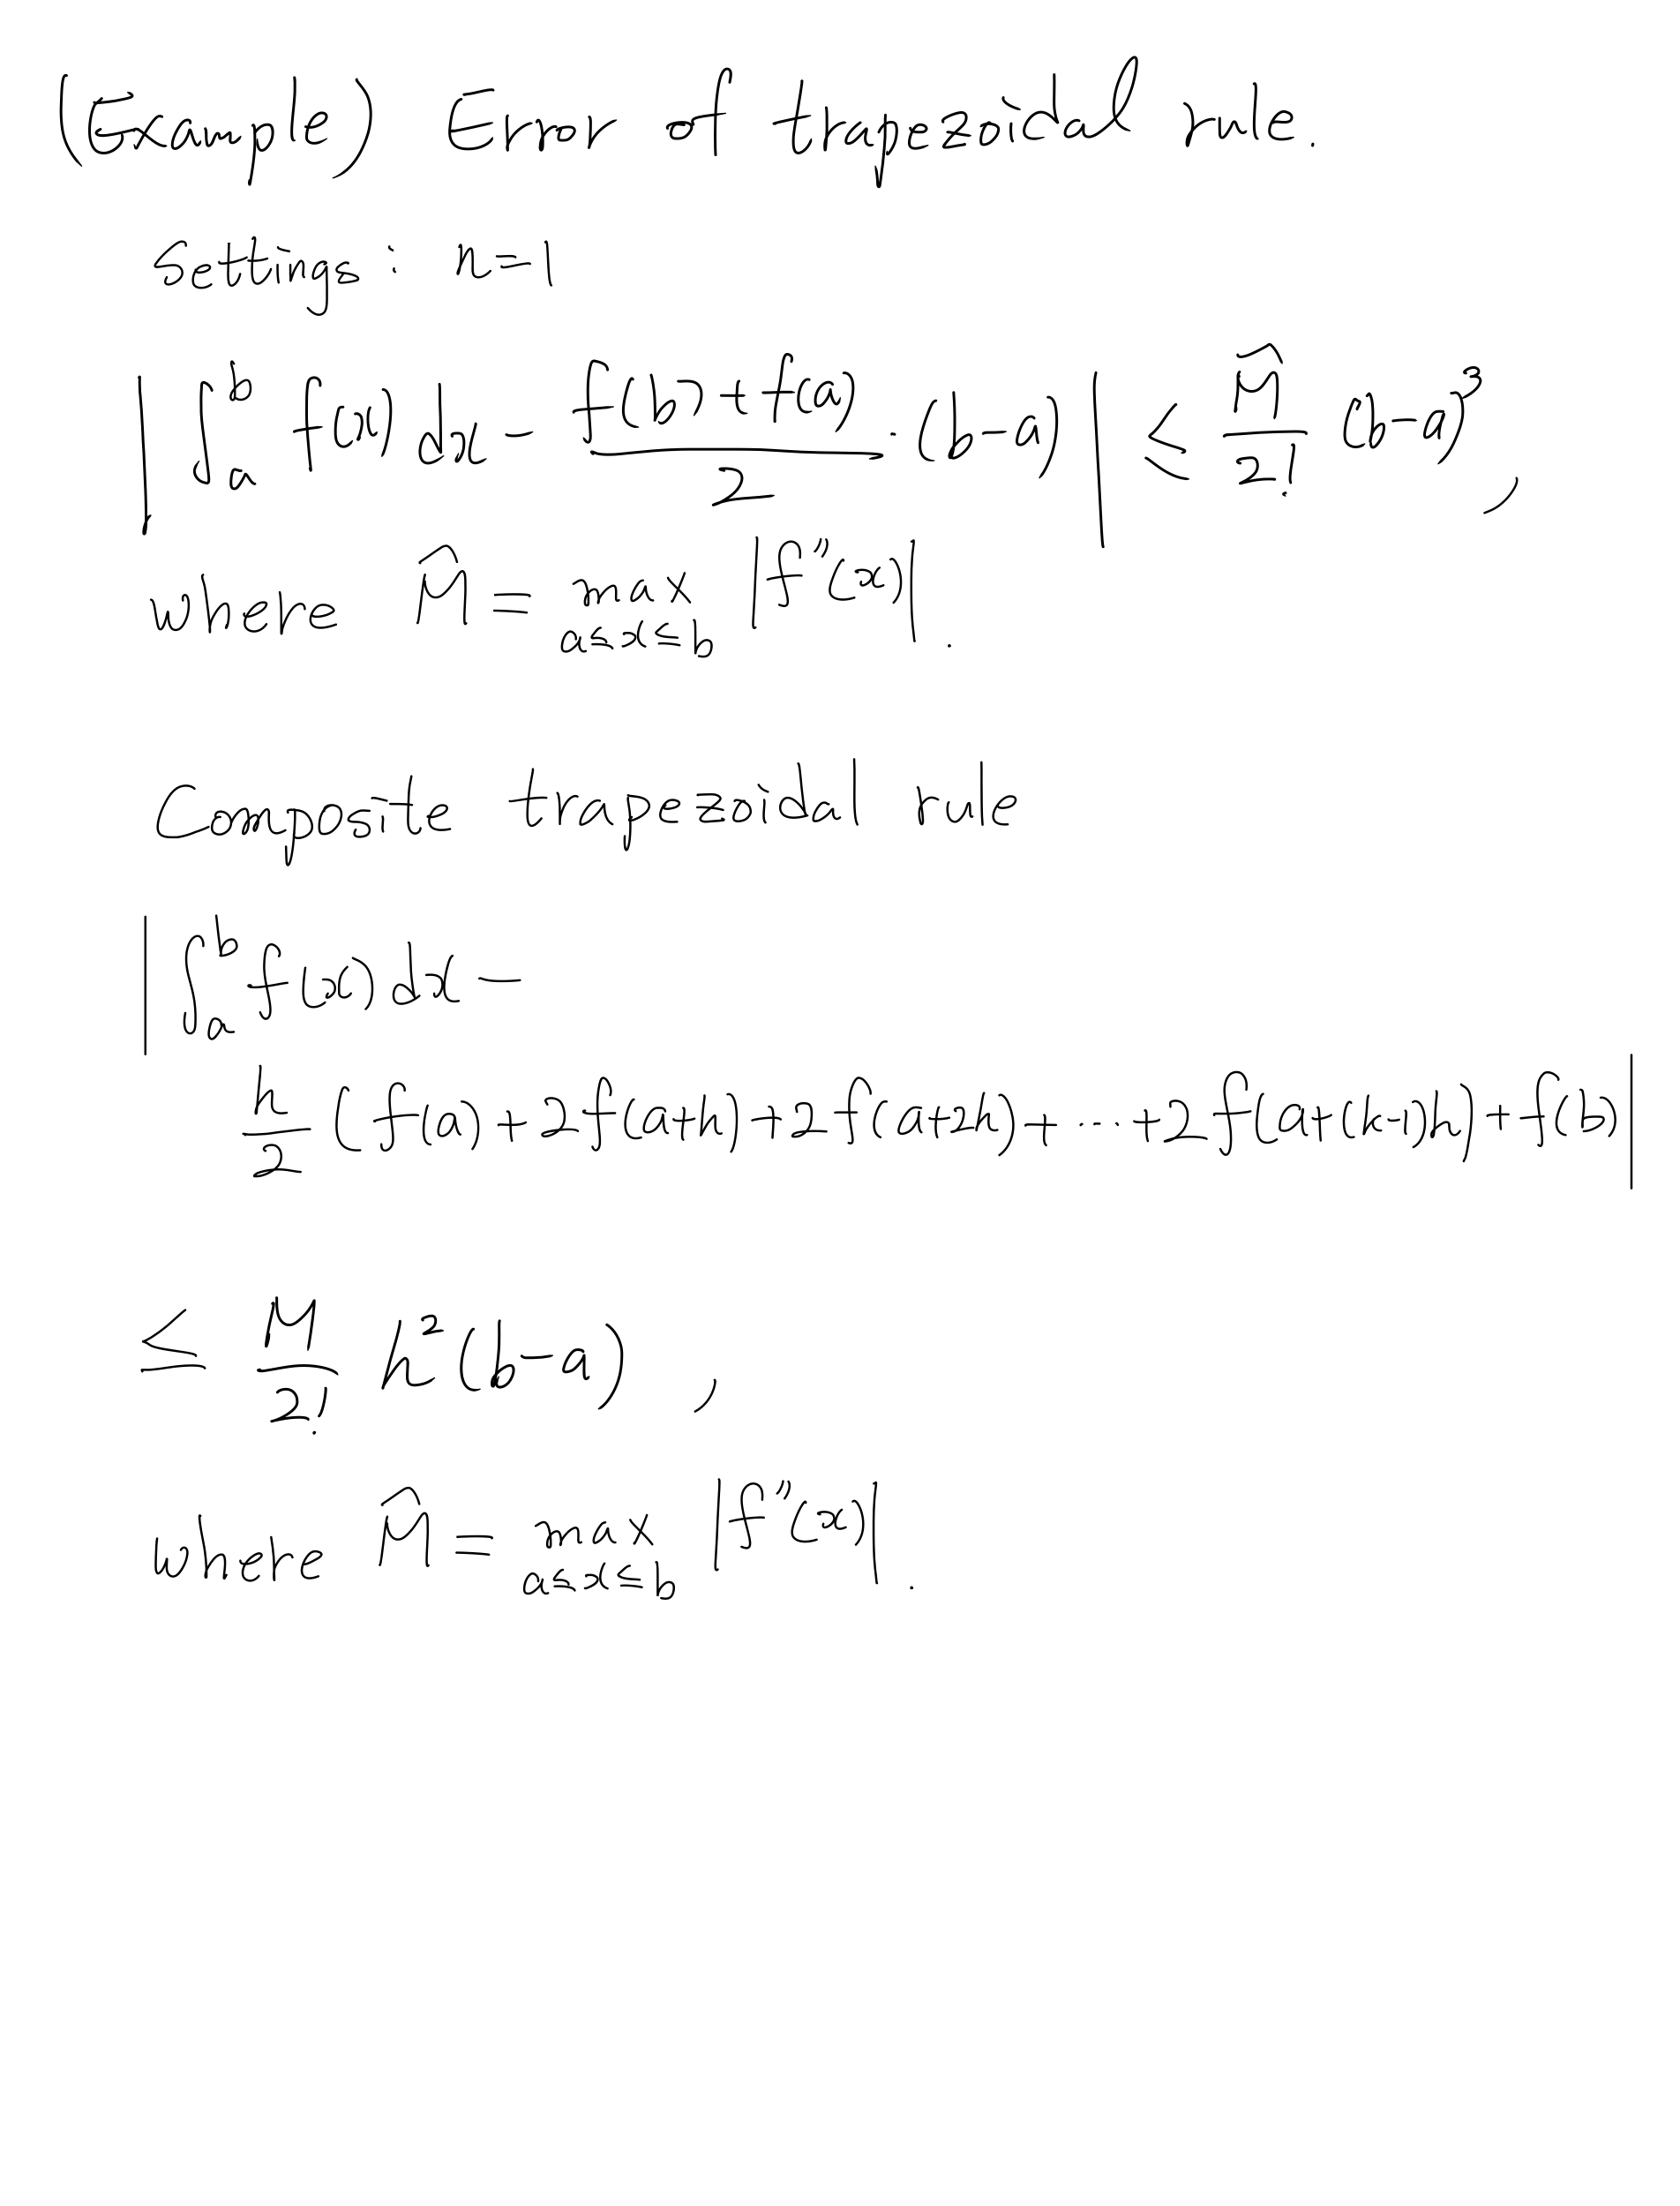 (Example) Error of trapezoidal rule.
Settings: n=1
| ∫_a^b f(x) dx - (f(b)+f(a))/2 · (b-a) | ≤ M̂/2! (b-a)^3 ,
where M̂ = max_{a≤x≤b} |f''(x)| .
Composite trapezoidal rule
| ∫_a^b f(x) dx -
h/2 ( f(a) + 2f(a+h) + 2f(a+2h) + ... + 2f(a+(k-1)h) + f(b) |
≤ M/2! h^2 (b-a) ,
where M̂ = max_{a≤x≤b} |f''(x)| .